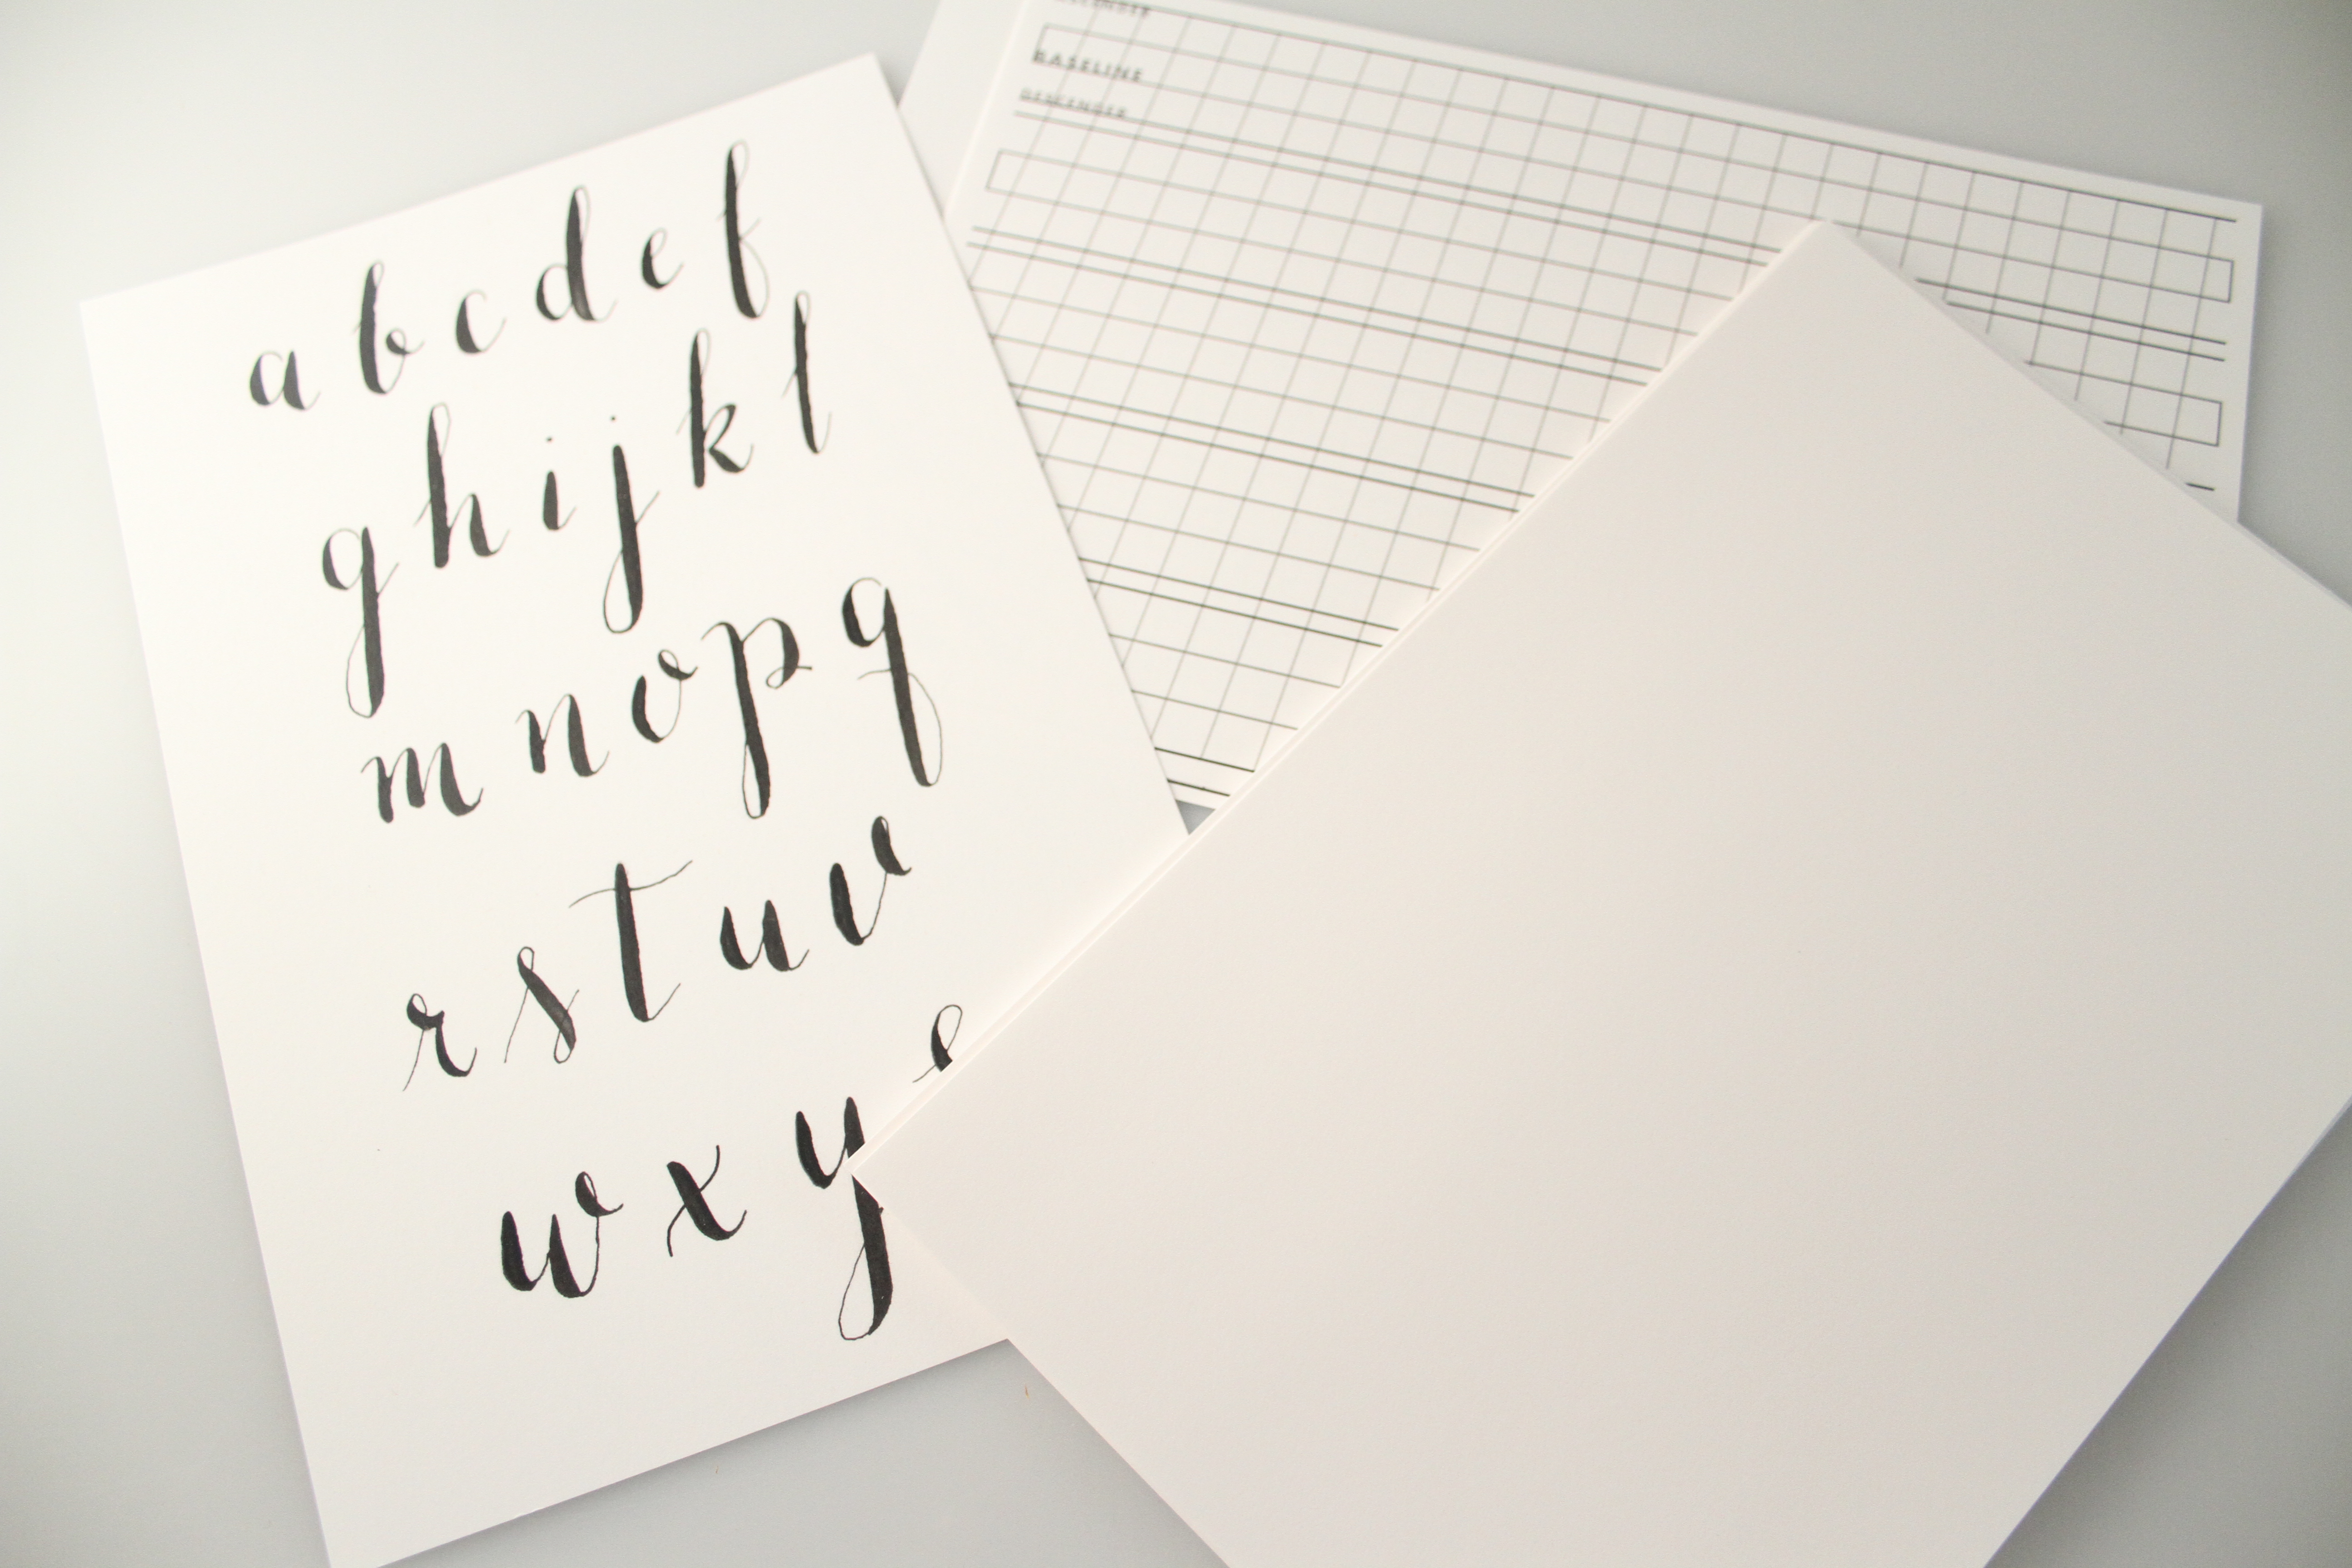 a b c d e f
g h i j k l
m n o p q
r s t u v
w x y
BASELINE
DESCENDER